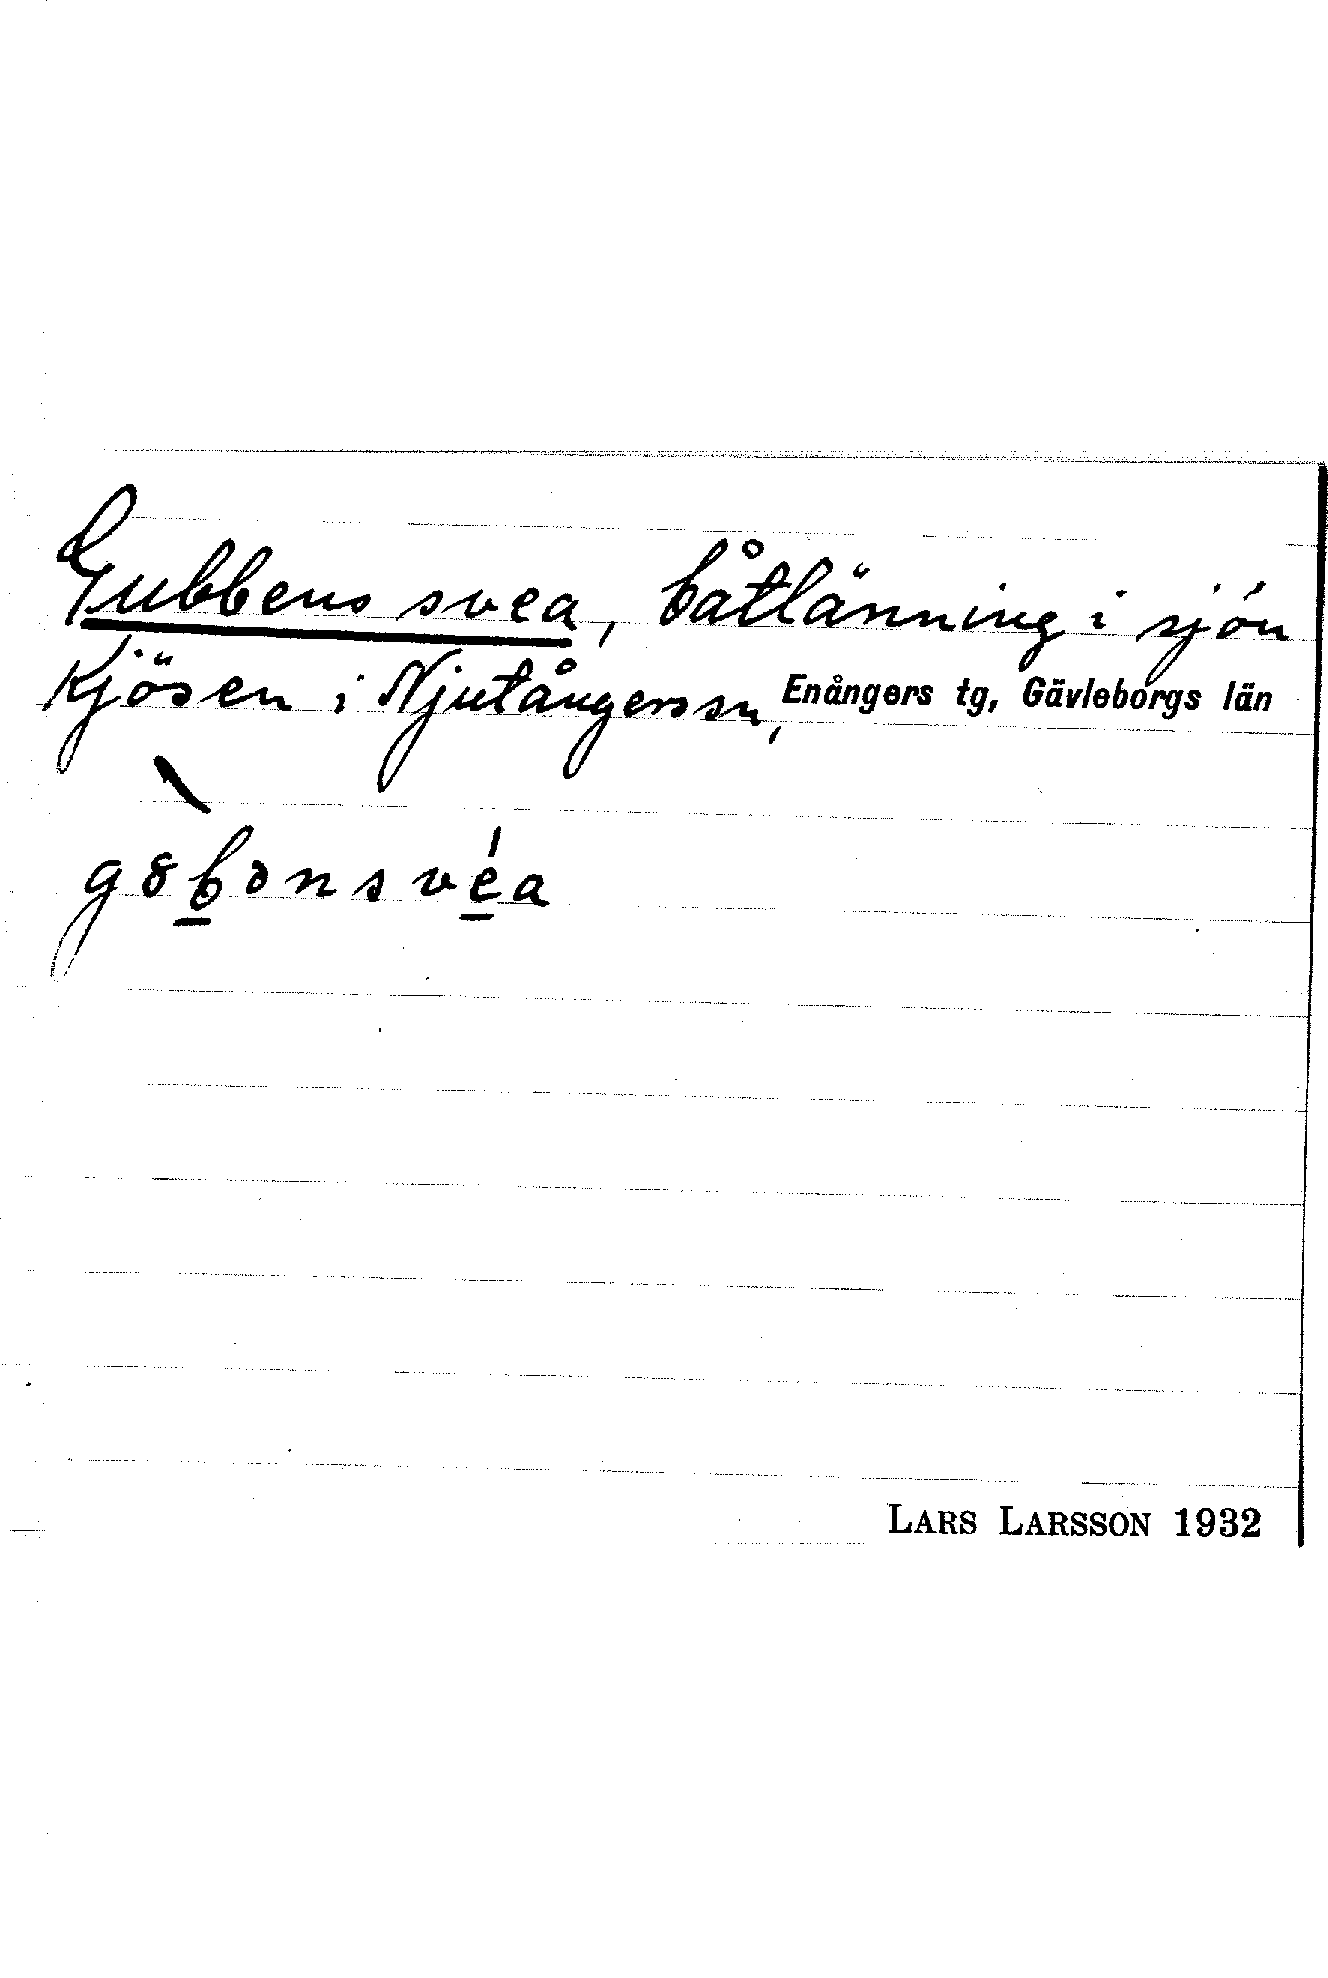 Gubbens svea, båtlänning i sjön
Kjösen i Njutångers sn, Enångers tg, Gävleborgs län
g8bənsvéa
LARS LARSSON 1932